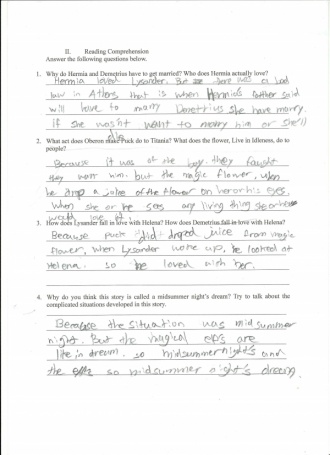 II. Reading Comprehension
Answer the following questions below.
1. Why do Hermia and Demetrius have to get married? Who does Hermia actually love?
Hermia loved Lysander. But there was a bad
law in Athens that is when Hermia's father said
will have to marry Demetrius she have marry.
if she wasn't want to marry him or she'll
die
2. What act does Oberon make Puck do to Titania? What does the flower, Live in Idleness, do to
people?
Because it was of the boy. they faught
they want him. but the magic flower, when
he drop a juice of the flower on her or his eyes,
when she or he sees any living thing she or he
would love it.
3. How does Lysander fall in love with Helena? How does Demetrius fall in love with Helena?
Because Puck did droped juice from magic
flower, when Lysander woke up, he looked at
Helena. so he loved with her.
4. Why do you think this story is called a midsummer night's dream? Try to talk about the
complicated situations developed in this story.
Because the situation was mid summer
night. But the magical elfs are
life in dream. so midsummer night's and
the so midsummer night's dream